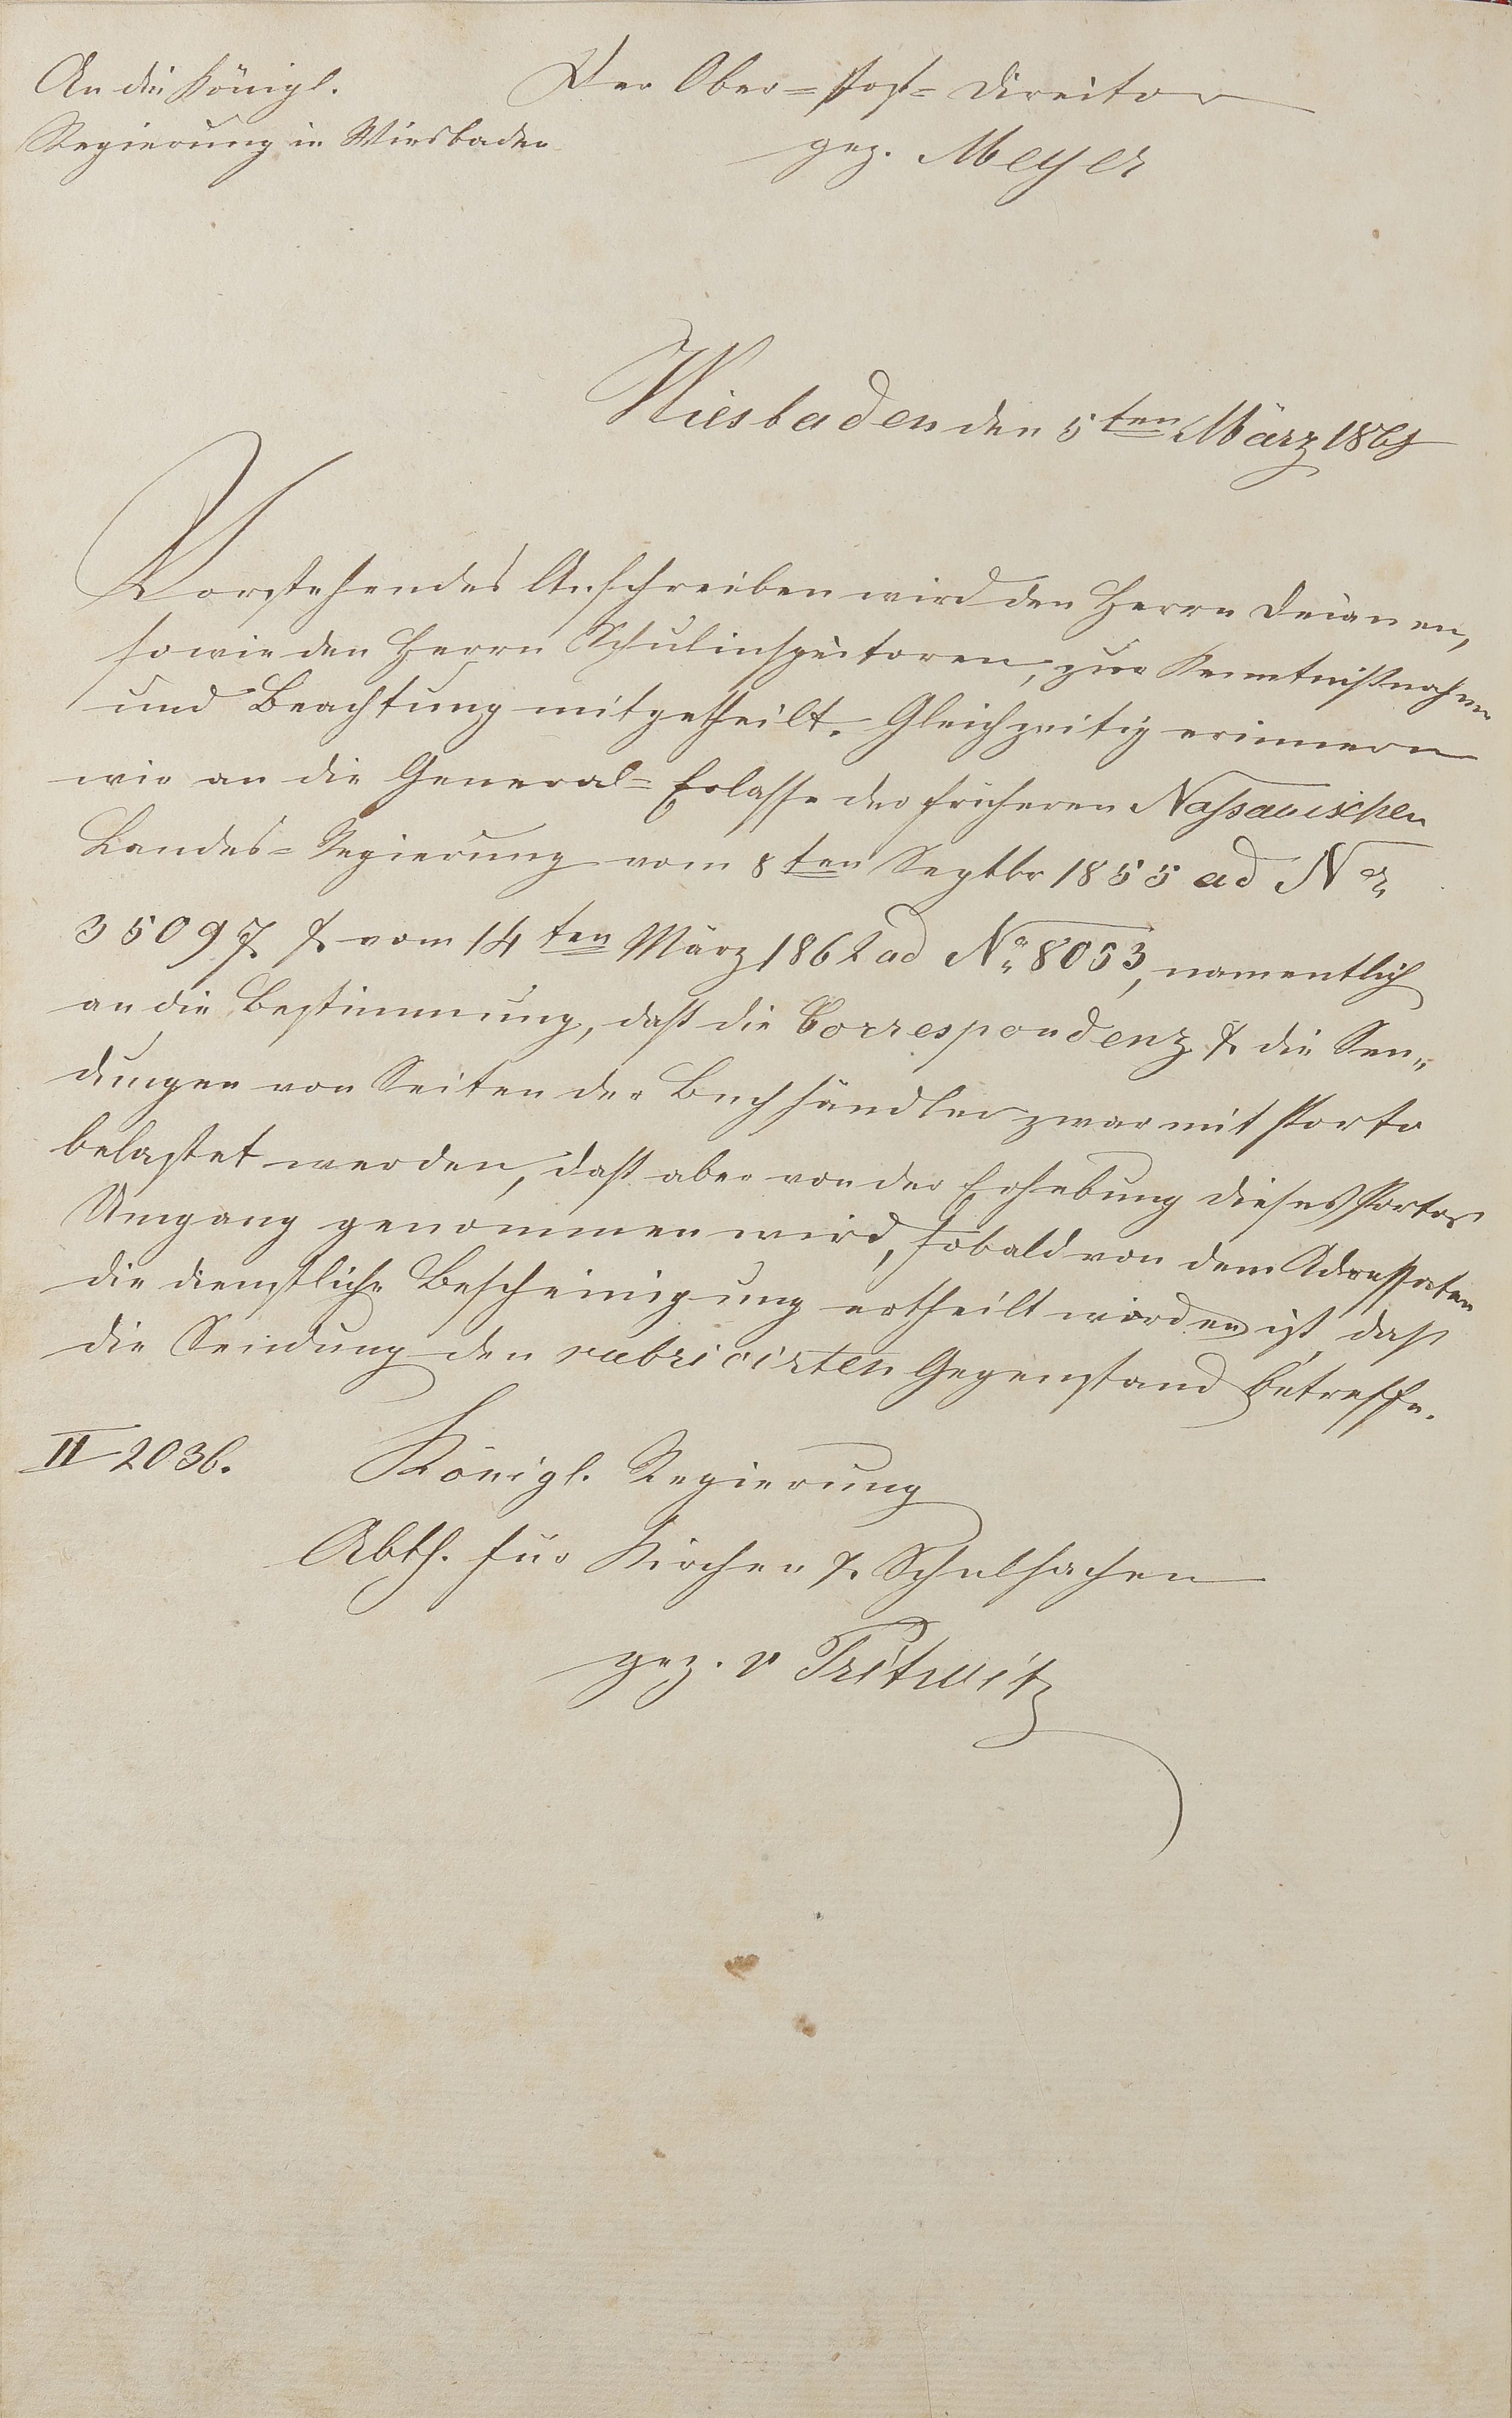 An die Königl.
Regierung in Wiesbaden
Der Ober=Post=Director
gez. Meyer
Wiesbaden den 5ten März 186
Vorstehendes Anschreiben wird den Herrn Decanen,
sowie den Herrn Schulinspectoren, zur Kenntnißnahme
und Beachtung mitgetheilt. Gleichzeitig erinnern
wir an die General=Erlasse der früheren Nassauischen
Landes=Regierung vom 8ten Septbr 1855 ad Nr.
35097 & vom 14ten März 1862 ad No. 8053, namentlich
an die Bestimmung, daß die Correspondenz & die Sen„
dungen von Seiten der Buchhändler zwar mit Porto
belastet werden, daß aber von der Erhebung dieses Portos
Umgang genommen wird, sobald von dem Adressaten
die dienstliche Bescheinigung ertheilt worden ist, daß
die Sendung den rubricirten Gegenstand betreffe.
II 2036.
Königl. Regierung
Abth. für Kirchen & Schulsachen
gez. v Pritwitz